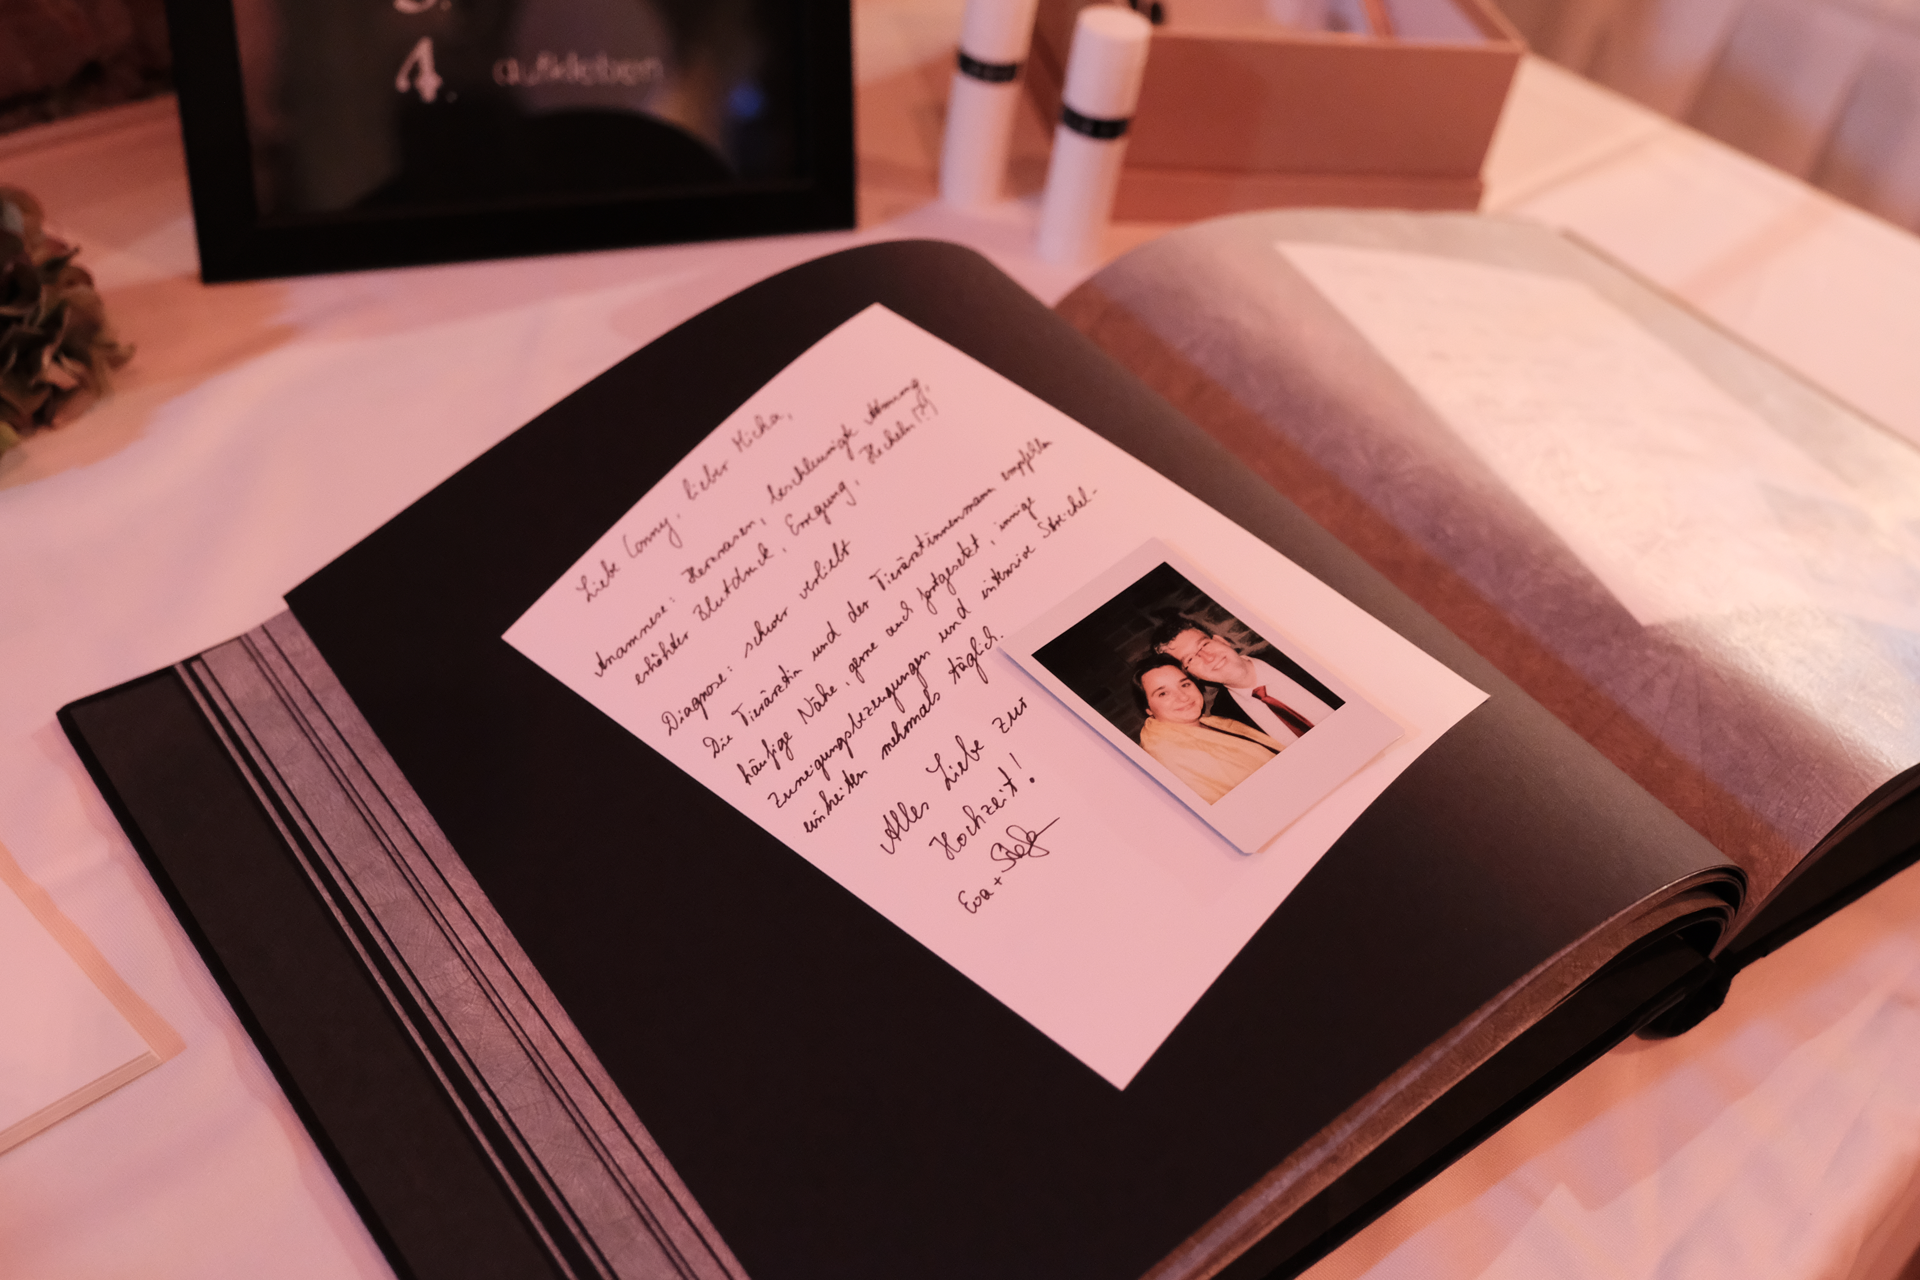 4. aufkleben
Liebe Conny, lieber Micha,
Anamnese: Herzrasen, beschleunigte Atmung,
erhöhter Blutdruck, Erregung, Hecheln (?!)
Diagnose: schwer verliebt
Die Tierärztin und der Tierärztinnenmann empfehlen
häufige Nähe, gerne auch fortgesetzt, innige
Zuneigungsbezeugungen und intensive Streichel-
einheiten mehrmals täglich.
Alles Liebe zur
Hochzeit!
Eva + Stefan